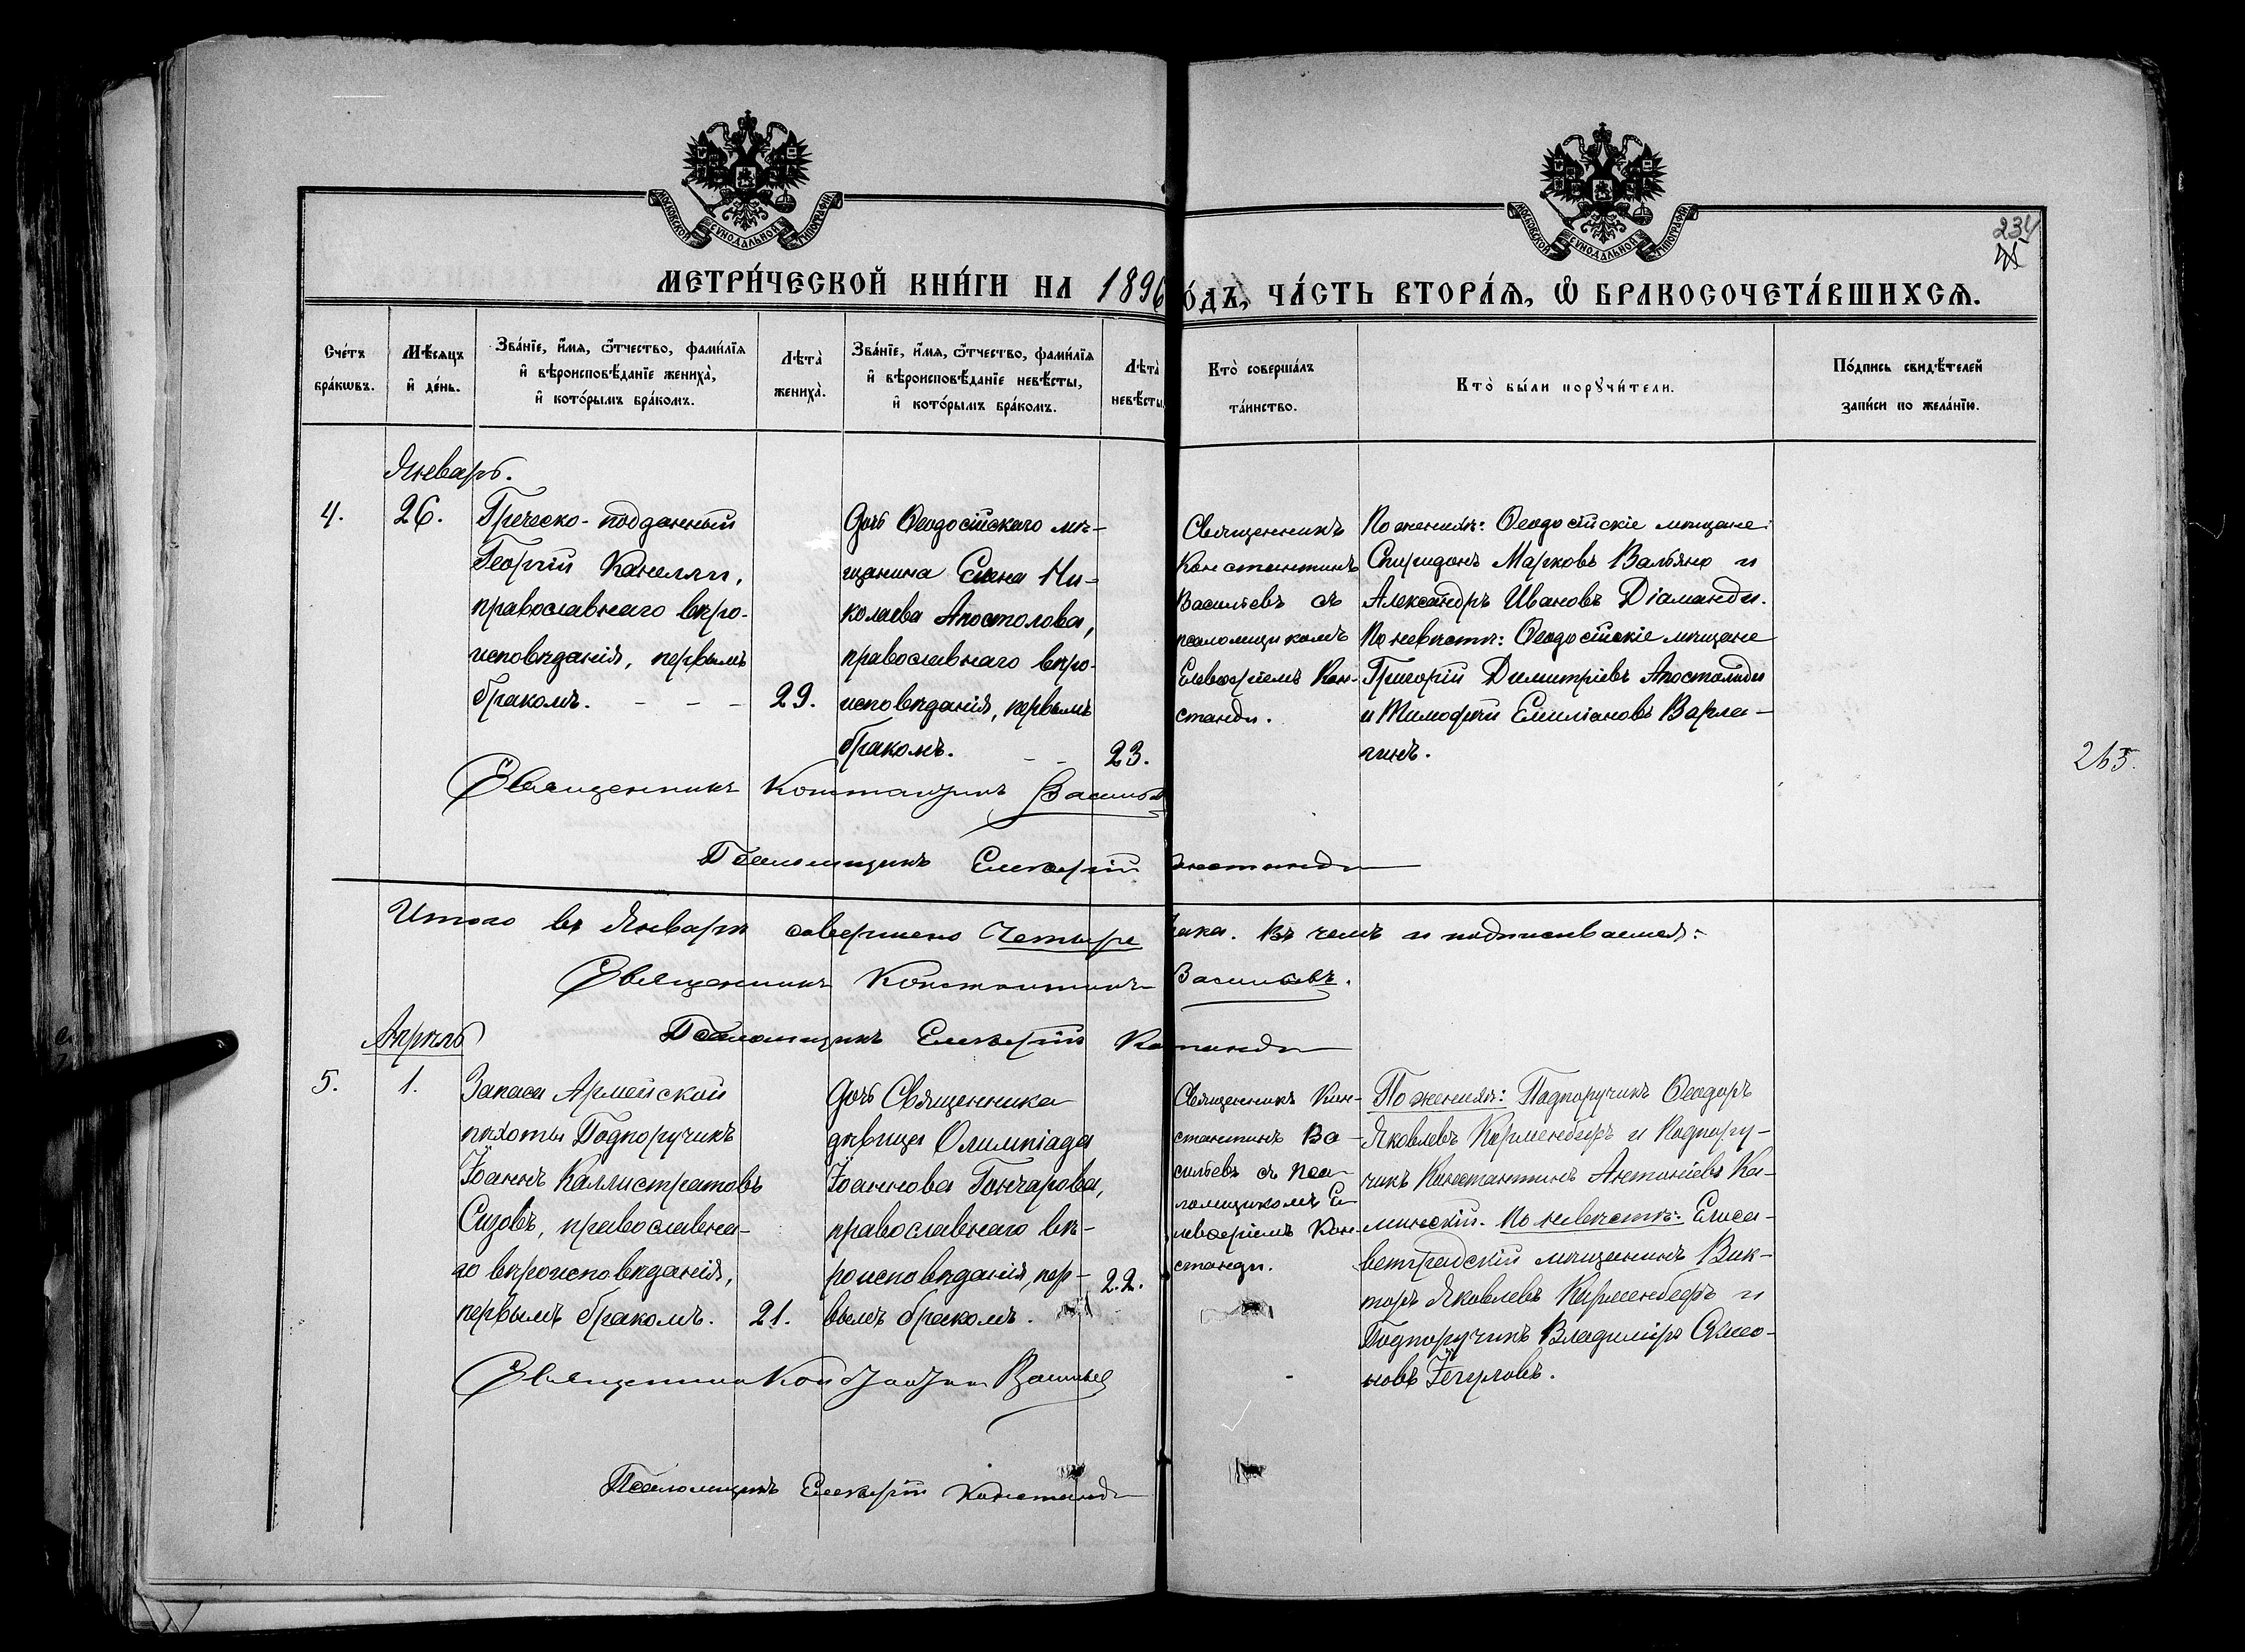 МОСКОВСКОЙ СУНОДАЛЬНОЙ ТИПОГРАФІИ
МОСКОВСКОЙ СУНОДАЛЬНОЙ ТИПОГРАФІИ
234
МЕТРИ́ЧЕСКОЙ КНИ́ГИ НА 1896
О́ДЪ, ЧА́СТЬ ВТОРА́Ѧ, Ѡ҆ БРАКОСОЧЕТА́ВШИХСѦ.
Сче́тъ бра́кѡвъ.
Мѣ́сѧцъ и҆ де́нь.
Зва́нїе, и҆́мѧ, ѻ҆́тчество, фами́лїѧ
и҆ вѣроисповѣ́данїе жениха̀,
и҆ кото́рымъ бра́комъ.
Лѣта̀ жениха̀.
Зва́нїе, и҆́мѧ, ѻ҆́тчество, фами́лїѧ
и҆ вѣроисповѣ́данїе невѣ́сты,
и҆ кото́рымъ бра́комъ.
Лѣта̀ невѣ́сты
Кто̀ соверша́лъ
та́инство.
Кто̀ бы́ли порꙋчи́тели.
По́дпись свидѣ́телей
за́писи по жела́нїю.
Январь.
4.
26.
Греческо-подданный
Георгій Канелли,
православнаго вѣро-
исповѣданія, первымъ
бракомъ. - - -
29.
Дочь Ѳеодосійскаго мѣ-
щанина Елена Ни-
колаева Апостолова,
православнаго вѣро-
исповѣданія, первымъ
бракомъ. - -
23.
Священникъ
Константинъ
Васильевъ съ
псаломщикомъ
Елевѳеріемъ Кон-
станди.
По женихѣ: Ѳеодосійскіе мѣщане:
Спиридонъ Марковъ Вальяно и
Александръ Ивановъ Діаманди.
По невѣстѣ: Ѳеодосійскіе мѣщане
Григорій Димитріевъ Апостолиди
и Тимоѳей Емиліановъ Варла-
гинъ.
265.
Священникъ Константинъ Василье
Псаломщикъ Елевѳерій онстанди
Итого въ Январѣ совершено Четыре рака. Въ чемъ и подписываемся:
Священникъ Константинъ Васильевъ.
Псаломщикъ Елевѳерій Констанди
Апрѣль
5.
1.
Запаса Армейской
пѣхоты Подпоручикъ
Іоаннъ Каллистратовъ
Сизовъ, православна-
го вѣроисповѣданія,
первымъ бракомъ.
21.
Дочь Священника
дѣвица Олимпіада
Іоаннова Гончарова,
православнаго вѣ-
роисповѣданія, пер-
вымъ бракомъ.
22.
Священникъ Кон-
стантинъ Ва-
сильевъ съ Пса-
ломщикомъ Е-
левѳеріемъ Кон-
станди.
По женихѣ: Подпоручикъ Ѳеодоръ
Яковлевъ Кирменбееръ и Подпору-
чикъ Константинъ Антоніевъ Ка-
минскій. По невѣстѣ: Елиса-
ветградскій мѣщанинъ Вик-
торъ Яковлевъ Кирменбееръ и
Подпоручикъ Владиміръ
новъ
Священник Константин Васильев
Псаломщикъ Елевѳерій Констанди